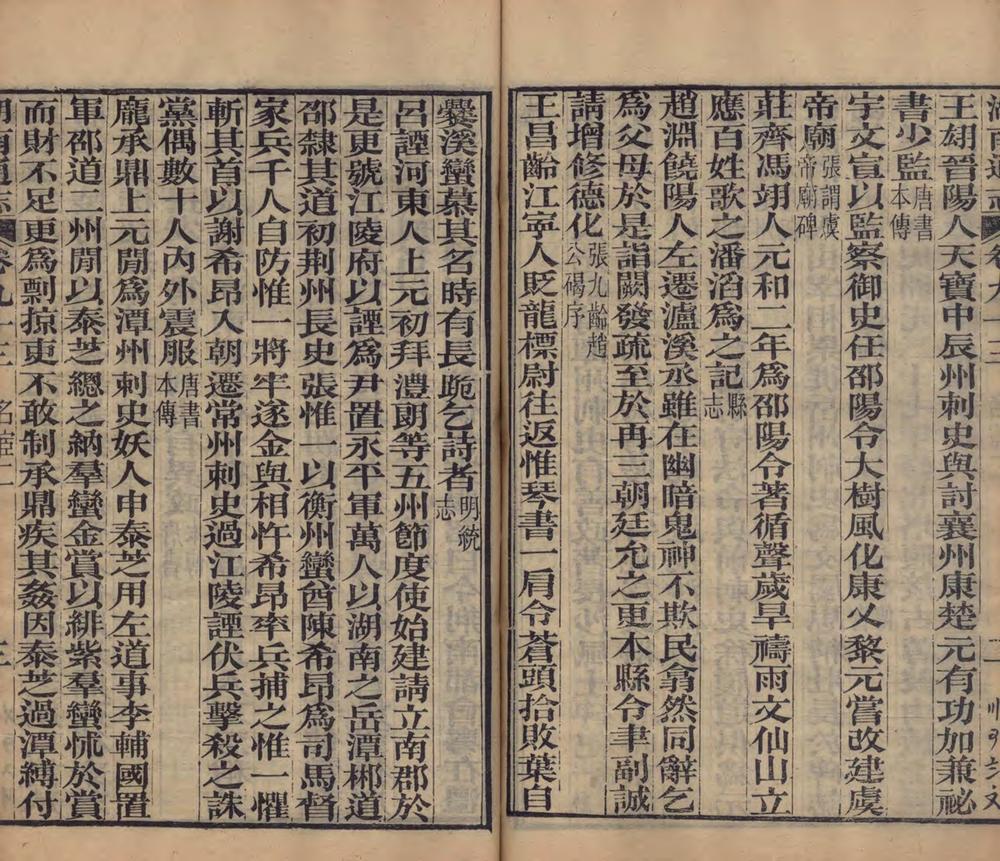 湖南通志 卷九十三
王翃晉陽人天寶中辰州刺史與討襄州康楚元有功加兼祕
書少監唐書本傳
宇文宣以監察御史任邵陽令大樹風化康乂黎元嘗改建虞
帝廟張謂虞帝廟碑
莊齊馮翊人元和二年為邵陽令著循聲歲旱禱雨文仙山立
應百姓歌之潘滔為之記縣志
趙淵饒陽人左遷瀘溪丞雖在幽暗鬼神不欺民翕然同辭乞
為父母於是詣闕發疏至於再三朝廷允之更本縣令聿副誠
請增修德化張九齡趙公碣序
王昌齡江寧人貶龍標尉往返惟琴書一肩令蒼頭拾敗葉自
爨溪蠻慕其名時有長跪乞詩者明統志
呂諲河東人上元初拜澧朗等五州節度使始建請立南郡於
是更號江陵府以諲為尹置永平軍萬人以湖南之岳潭郴道
邵隸其道初荆州長史張惟一以衡州蠻酋陳希昂為司馬督
家兵千人自防惟一將牢遂金與相忤希昂率兵捕之惟一懼
斬其首以謝希昂入朝遷常州刺史過江陵諲伏兵擊殺之誅
黨偶數十人內外震服唐書本傳
龐承鼎上元閒為潭州刺史妖人申泰芝用左道事李輔國置
軍邵道二州閒以泰芝總之納羣蠻金賞以緋紫羣蠻怵於賞
而財不足更為剽掠吏不敢制承鼎疾其姦因泰芝過潭縛付
湖南通志 卷九十三 名宦二 三